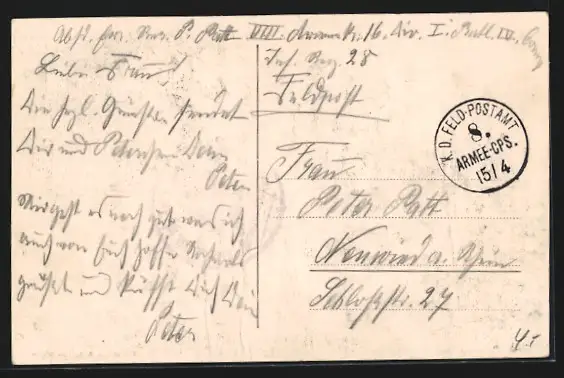 Abs. Ers. Res. P. Patt VIII. Armeek. 16. Div. I. Batl. IV. Comp
Inf. Reg. 28
Feldpost
Liebe Frau!
Die herzl. Grüße sendet
Dir und Peterchen Dein
Peter
Mir geht es noch gut was ich
auch von Euch hoffe Nochmals
gegrüßt und küsst Dich Dein
Peter
K. D. FELD-POSTAMT
8.
ARMEE-CPS.
15/4
Frau
Peter Patt
Neuwied a. Rhein
Schloßstr. 27